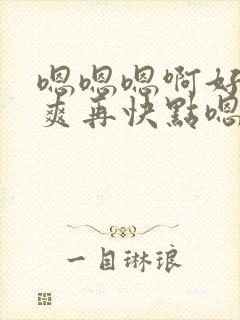 嗯嗯嗯啊好
爽再快點嗯
一目琳琅